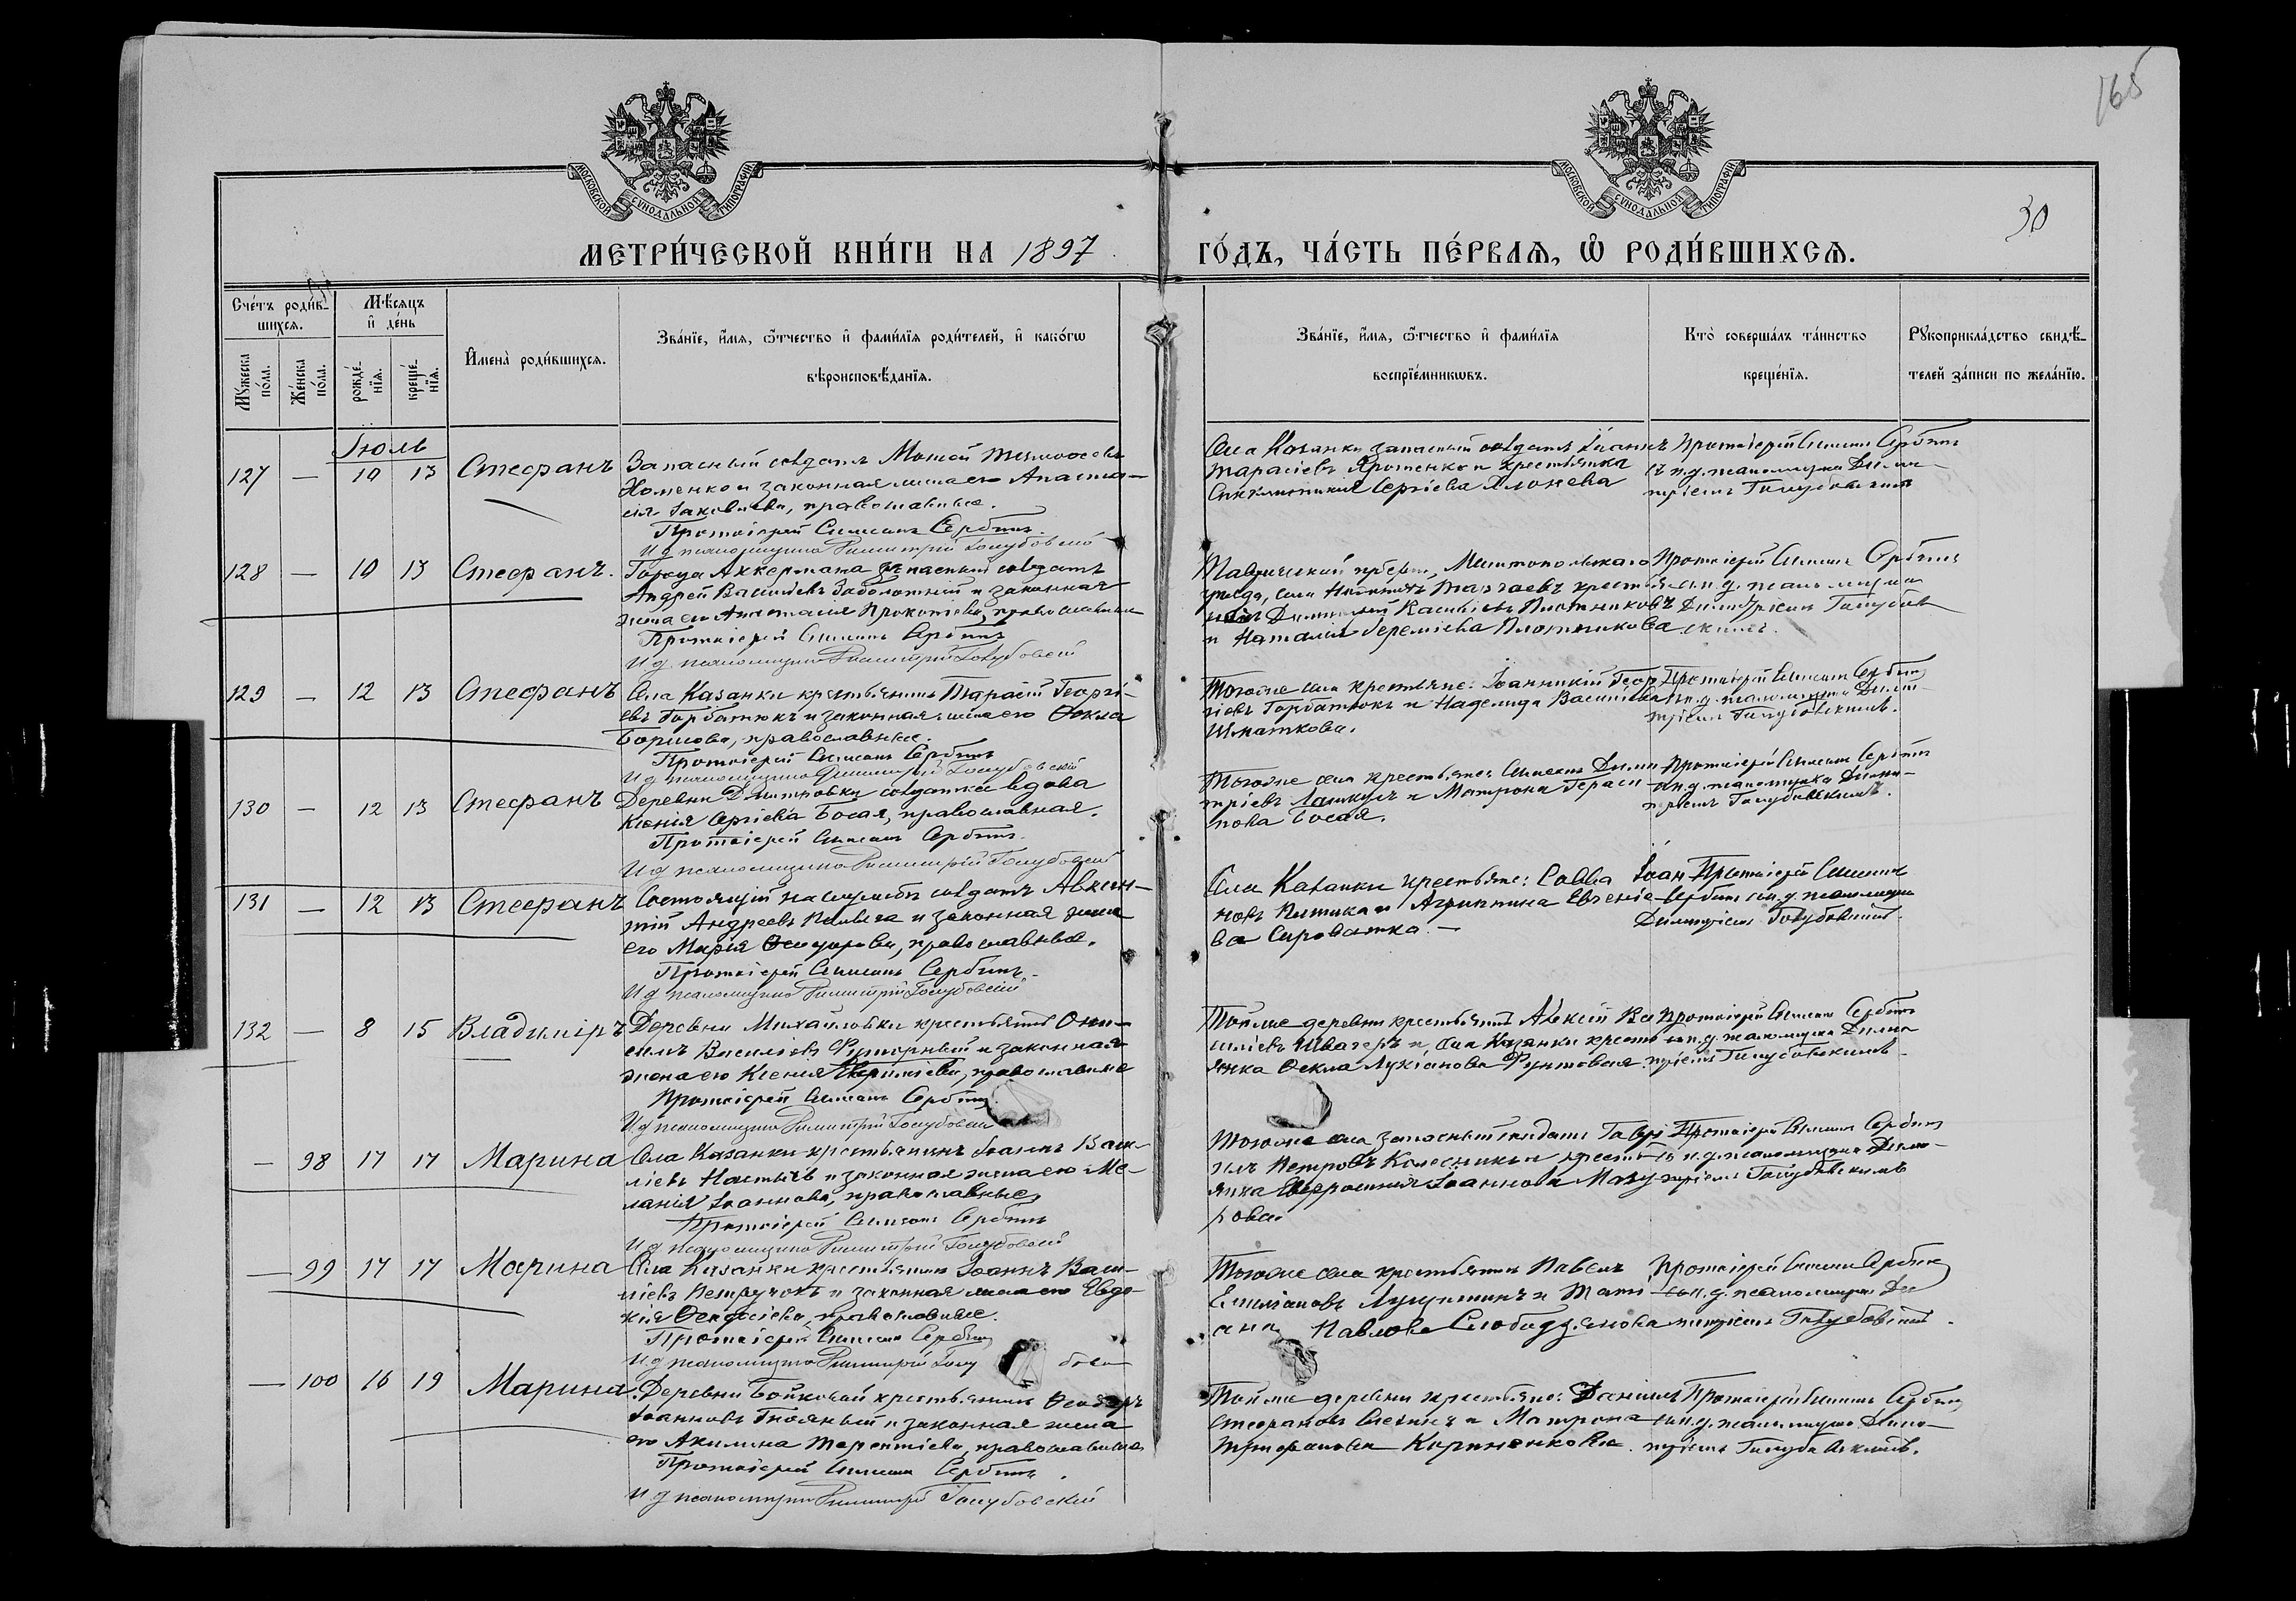 165
30
МОСКОВСКОЙ СѴНОДАЛЬНОЙ ТИПОГРАФІИ
МОСКОВСКОЙ СѴНОДАЛЬНОЙ ТИПОГРАФІИ
МЕТРИ́ЧЕСКОЙ КНИ́ГИ НА 1897 ГО́ДЪ, ЧА́СТЬ ПЕ́РВАЯ, Ѡ҆ РОДИ́ВШИХСЯ.
Сче́тъ роди́в-
шихся.
Мꙋ́жеска по́ла.
Же́нска по́ла.
Мѣ́сяцъ
и҆ де́нь
рожде́-
нїя.
креще́-
нїя.
И҆мена̀ роди́вшихся.
Зва́нїе, и҆́мя, ѻ҆́тчество и҆ фами́лїя роди́телей, и҆ како́гѡ
вѣроисповѣ́данїя.
Зва́нїе, и҆́мя, ѻ҆́тчество и҆ фами́лїя
воспрїе́мникѡвъ.
Кто̀ соверша́лъ та́инство
креще́нїя.
Рꙋкоприкла́дство свидѣ́-
телей за́писи по жела́нїю.
Іюль
127 — 10 13 Стефанъ
Запасный солдатъ Мойсей
Хоменко и законная жена его Анаста-
сія Іаковлева, православные.
Протоіерей Симеонъ Сербинъ
И д псаломщика Димитрій Голубовскій
Села Казанки запасный солдатъ Іоаннъ
Тарасіевъ Яроменко и крестьянка
Сергіева
Протоіерей Симеонъ Сербинъ
съ и.д. псаломщика Дими-
тріемъ Голубовскимъ
128 — 10 13 Стефанъ.
Города Аккермана запасный солдатъ
Андрей Васильевъ Заболотний и законная
жена его Анастасія Прокопіева, православные
Протоіерей Симеонъ Сербинъ
И д псаломщика Димитрій Голубовскій
Таврической губерн., Мелитопольскаго
уѣзда, села
Димитрій Касьяновъ Плотниковъ
и Наталія Іереміева Плотникова
Протоіерей Симеонъ Сербинъ
съ и.д. псаломщика
Димитріемъ Голубов-
скимъ.
129 — 12 13 Стефанъ
Села Казанки крестьянинъ Тарасій Георгі-
евъ Горбатюкъ и законная жена его Ѳекла
Борисова, православные.
Протоіерей Симеонъ Сербинъ
И д псаломщика Димитрій Голубовскій
Тогоже села крестьяне: Іоанникій Геор-
гіевъ Горбатюкъ и Надежда Васильева
Шматкова.
Протоіерей Симеонъ Сербинъ
съ и.д. псаломщика Дими-
тріемъ Голубовскимъ.
130 — 12 13 Стефанъ
Деревни Дмитровки солдатка вдова
Ксенія Сергіева Босая, православная.
Протоіерей Симеонъ Сербинъ
И д псаломщика Димитрій Голубовскій
Тогоже села крестьяне: Симеонъ Дими-
тріевъ и Матрона Гераси-
мова Босая.
Протоіерей Симеонъ Сербинъ
съ и.д. псаломщика Дими-
тріемъ Голубовскимъ.
131 — 12 13 Стефанъ
Состоящій на службѣ солдатъ Авксен-
тій Андреевъ и законная жена
его Марія Ѳеодорова, православные.
Протоіерей Симеонъ Сербинъ.
И д псаломщика Димитрій Голубовскій
Села Казанки крестьяне: Савва Іоан-
новъ и Агриппина Евгеніе-
ва Сироватка. —
Протоіерей Симеонъ
Сербинъ съ и.д. псаломщика
Димитріемъ Голубовскимъ.
132 — 8 15 Владиміръ
Деревни Михайловки крестьянинъ Они-
симъ Василіевъ Футорный и законная
жена его Ксенія православные
Протоіерей Симеонъ Сербинъ.
И д псаломщика Димитрій Голубовскій
Тойже деревни крестьянинъ Алексій Ва-
силіевъ Швагеръ и села Казанки кресть-
янка Ѳекла Лукіанова
Протоіерей Симеонъ Сербинъ
съ и.д. псаломщика Дими-
тріемъ Голубовскимъ.
— 98 17 17 Марина
Села Казанки крестьянинъ Іоаннъ Васи-
ліевъ и законная жена его Ме-
ланія Іоаннова, православные
Протоіерей Симеонъ Сербинъ
И д псаломщика Димитрій Голубовскій
Тогоже села запасный солдатъ Гаврі-
илъ Петровъ Колесникъ и кресть-
янка Евфросинія Іоаннова Мазу-
рова.
Протоіерей Симеонъ Сербинъ
съ и.д. псаломщика Дими-
тріемъ Голубовскимъ
— 99 17 17 Марина
Села Казанки крестьянинъ Іоаннъ Васи-
ліевъ Петручокъ и законная жена его Евдо-
кія Ѳеодосіева, православные.
Протоіерей Симеонъ Сербинъ
И д псаломщика Димитрій Голубовскій
Тогоже села крестьянинъ Павелъ
Емиліановъ и Тати-
ана Павлова
Протоіерей Симеонъ Сербинъ
съ и.д. псаломщика Ди-
митріемъ Голубовскимъ.
— 100 16 19 Марина.
Деревни Бойковой крестьянинъ Ѳеодоръ
Іоанновъ Гнояный и законная жена
его Акилина Терентіева, православные
Протоіерей Симеонъ Сербинъ.
И д псаломщика Димитрій Голубовскій
Тойже деревни крестьяне: Даніилъ
Стефановъ и Матрона
Трифонова Кириченкова.
Протоіерей Симеонъ Сербинъ
съ и.д. псаломщика Дими-
тріемъ Голубовскимъ.